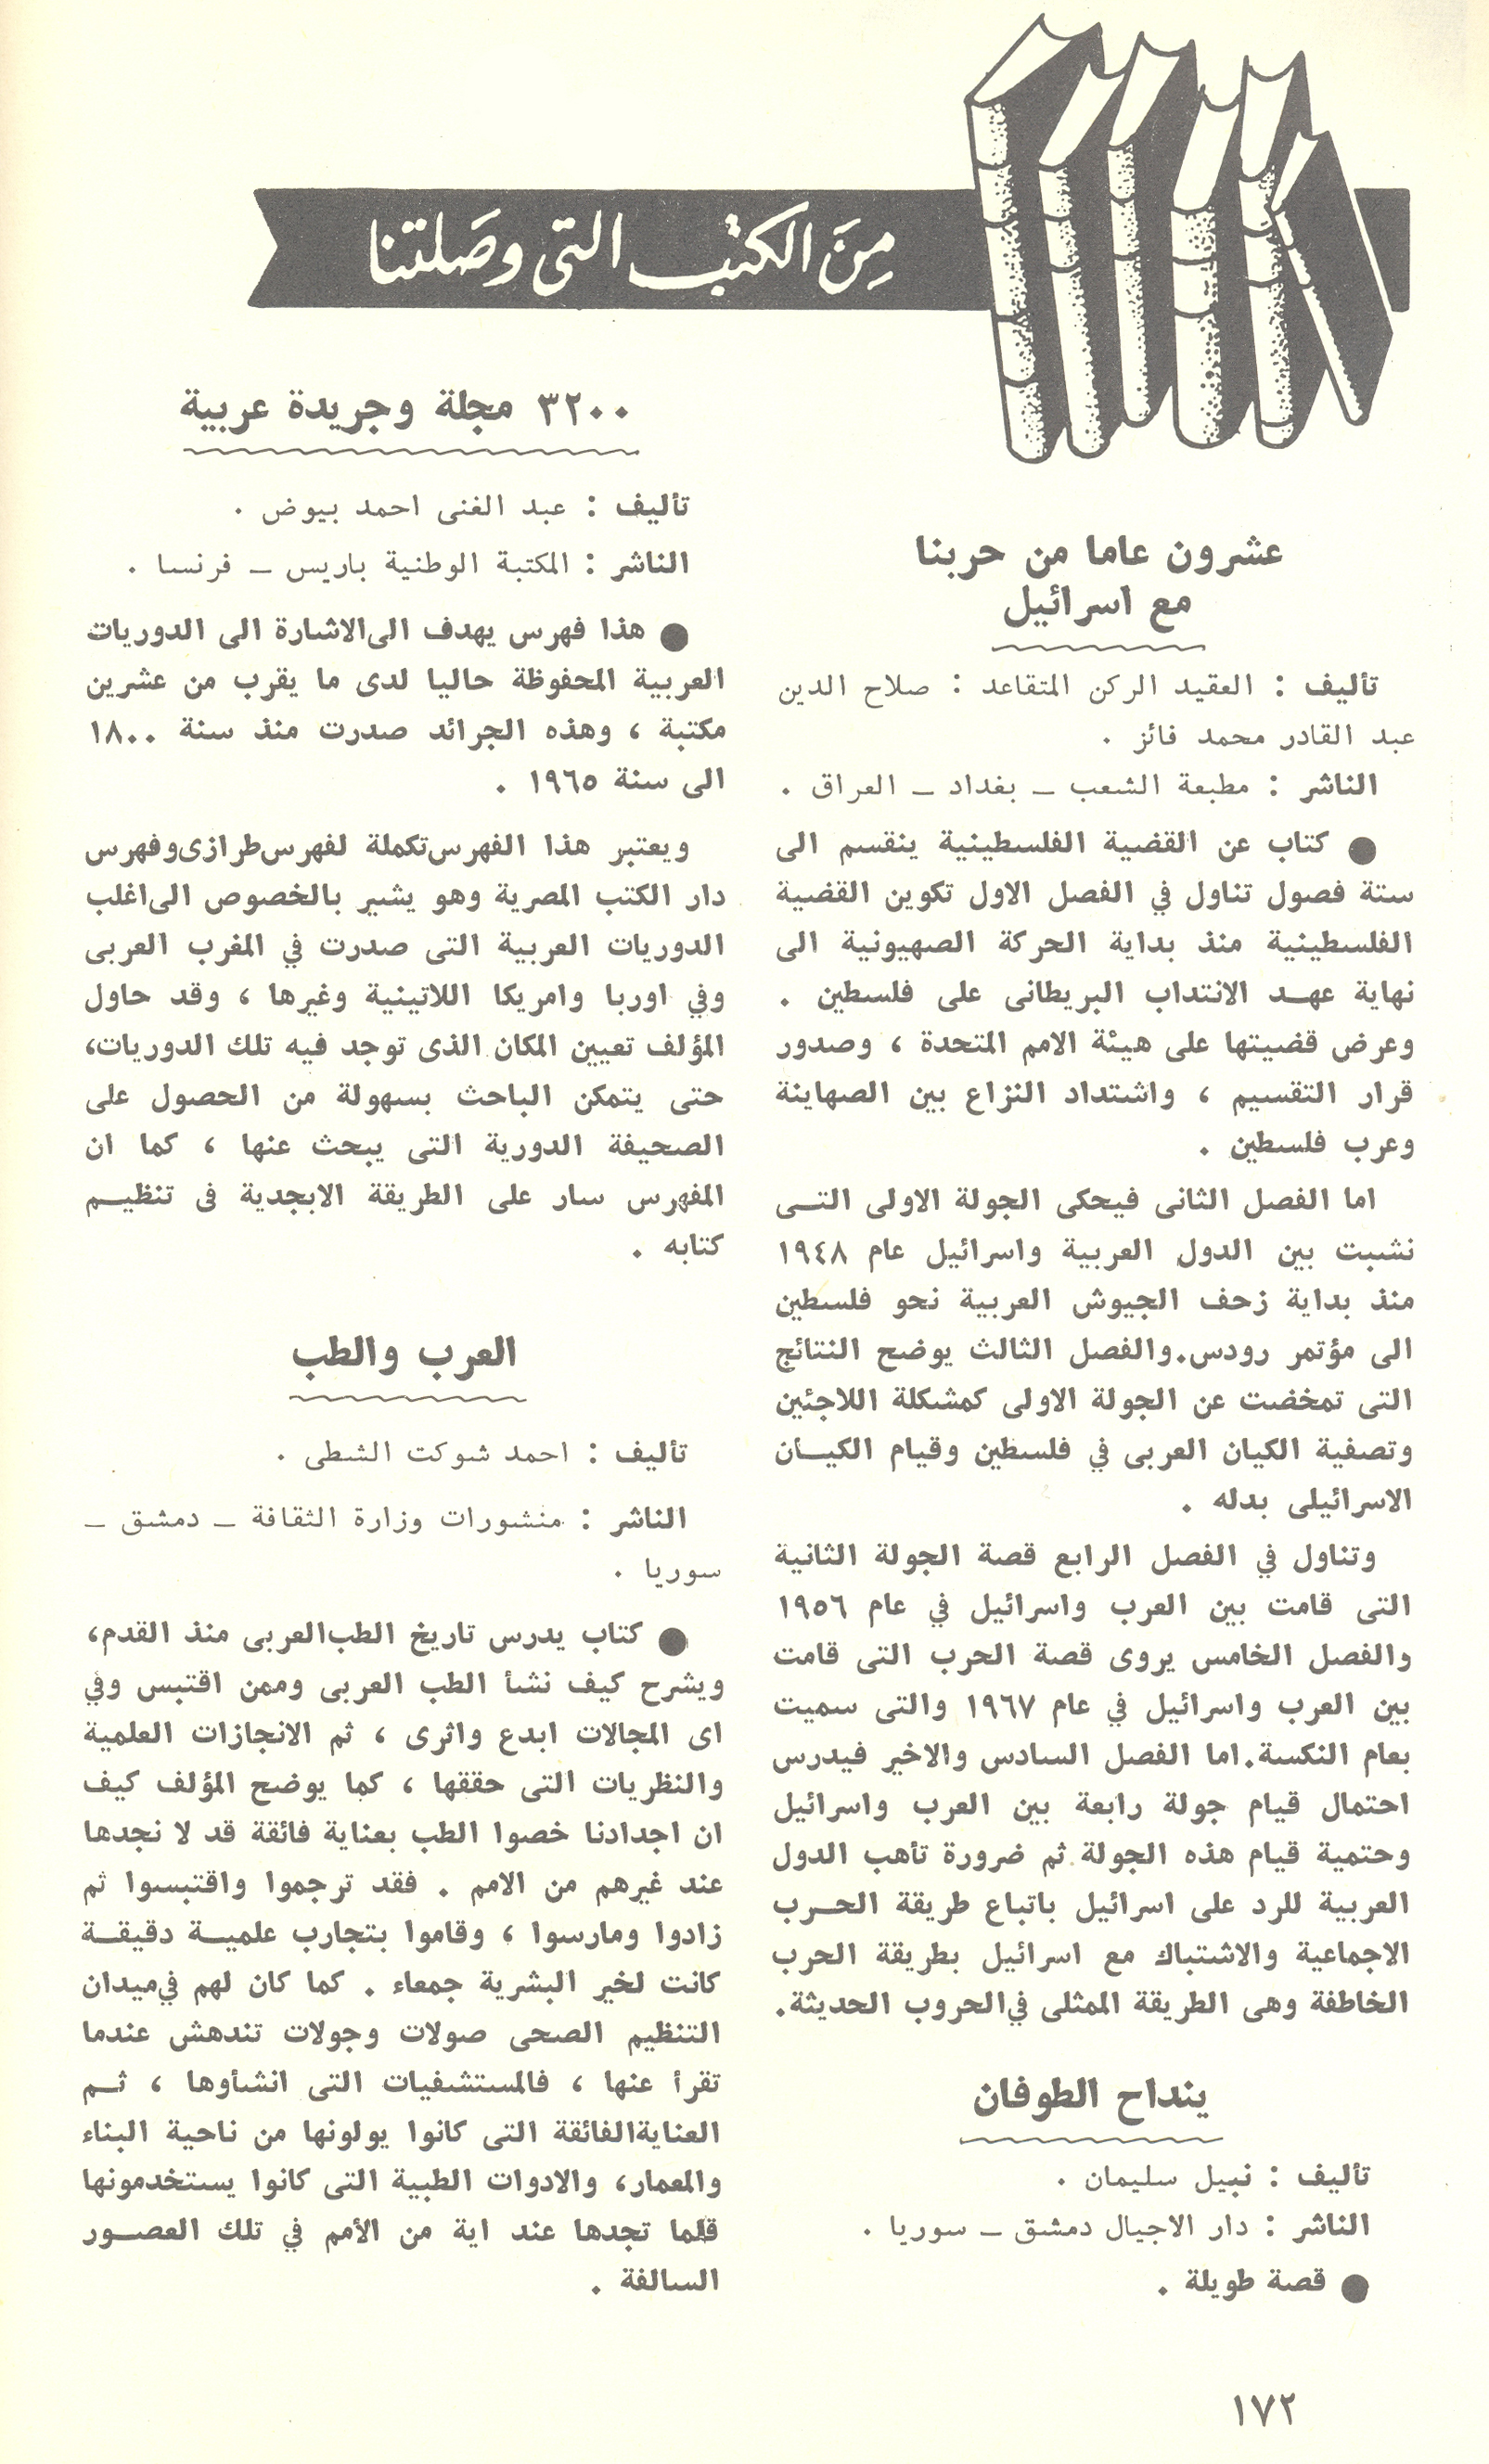 مِنَ الكتب التى وصَلتنا
عشرون عاما من حربنا
مع اسرائيل
تأليف : العقيد الركن المتقاعد : صلاح الدين
عبد القادر محمد فائز .
الناشر : مطبعة الشعب ــ بغداد ــ العراق .
● كتاب عن القضية الفلسطينية ينقسم الى
ستة فصول تناول في الفصل الاول تكوين القضية
الفلسطينية منذ بداية الحركة الصهيونية الى
نهاية عهــد الانتداب البريطانى على فلسطين .
وعرض قضيتها على هيئة الامم المتحدة ، وصدور
قرار التقسيم ، واشتداد النزاع بين الصهاينة
وعرب فلسطين .
اما الفصل الثانى فيحكى الجولة الاولى التــى
نشبت بين الدول العربية واسرائيل عام ١٩٤٨
منذ بداية زحف الجيوش العربية نحو فلسطين
الى مؤتمر رودس.والفصل الثالث يوضح النتائج
التى تمخضت عن الجولة الاولى كمشكلة اللاجئين
وتصفية الكيان العربى في فلسطين وقيام الكيــان
الاسرائيلى بدله .
وتناول في الفصل الرابع قصة الجولة الثانية
التى قامت بين العرب واسرائيل في عام ١٩٥٦
والفصل الخامس يروى قصة الحرب التى قامت
بين العرب واسرائيل في عام ١٩٦٧ والتى سميت
بعام النكسة.اما الفصل السادس والاخير فيدرس
احتمال قيام جولة رابعة بين العرب واسرائيل
وحتمية قيام هذه الجولة ثم ضرورة تأهب الدول
العربية للرد على اسرائيل باتباع طريقة الحــرب
الاجماعية والاشتباك مع اسرائيل بطريقة الحرب
الخاطفة وهى الطريقة الممثلى في الحروب الحديثة.
ينداح الطوفان
تأليف : نبيل سليمان .
الناشر : دار الاجيال دمشق ــ سوريا .
● قصة طويلة .
٣٢٠٠ مجلة وجريدة عربية
تأليف : عبد الغنى احمد بيوض .
الناشر : المكتبة الوطنية باريس ــ فرنسا .
● هذا فهرس يهدف الى الاشارة الى الدوريات
العربية المحفوظة حاليا لدى ما يقرب من عشرين
مكتبة ، وهذه الجرائد صدرت منذ سنة ١٨٠٠
الى سنة ١٩٦٥ .
ويعتبر هذا الفهرس تكملة لفهرس طرازى وفهرس
دار الكتب المصرية وهو يشير بالخصوص الى اغلب
الدوريات العربية التى صدرت في المغرب العربى
وفي اوربا وامريكا اللاتينية وغيرها ، وقد حاول
المؤلف تعيين المكان الذى توجد فيه تلك الدوريات،
حتى يتمكن الباحث بسهولة من الحصول على
الصحيفة الدورية التى يبحث عنها ، كما ان
المفهرس سار على الطريقة الابجدية فى تنظيــم
كتابه .
العرب والطب
تأليف : احمد شوكت الشطى .
الناشر : منشورات وزارة الثقافة ــ دمشق ــ
سوريا .
● كتاب يدرس تاريخ الطب العربى منذ القدم،
ويشرح كيف نشأ الطب العربى وممن اقتبس وفي
اى المجالات ابدع واثرى ، ثم الانجازات العلمية
والنظريات التى حققها ، كما يوضح المؤلف كيف
ان اجدادنا خصوا الطب بعناية فائقة قد لا نجدها
عند غيرهم من الامم . فقد ترجموا واقتبسوا ثم
زادوا ومارسوا ، وقاموا بتجارب علميــة دقيقــة
كانت لخير البشرية جمعاء . كما كان لهم في ميدان
التنظيم الصحى صولات وجولات تندهش عندما
تقرأ عنها ، فالمستشفيات التى انشأوها ، ثــم
العناية الفائقة التى كانوا يولونها من ناحية البناء
والمعمار، والادوات الطبية التى كانوا يستخدمونها
قلما تجدها عند اية من الأمم في تلك العصــور
السالفة .
١٧٢